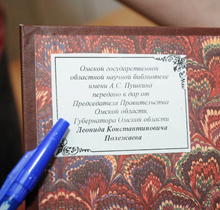 Омской государственной
областной научной библиотеке
имени А.С. Пушкина
передано в дар от
Председателя Правительства
Омской области,
Губернатора Омской области
Леонида Константиновича
Полежаева